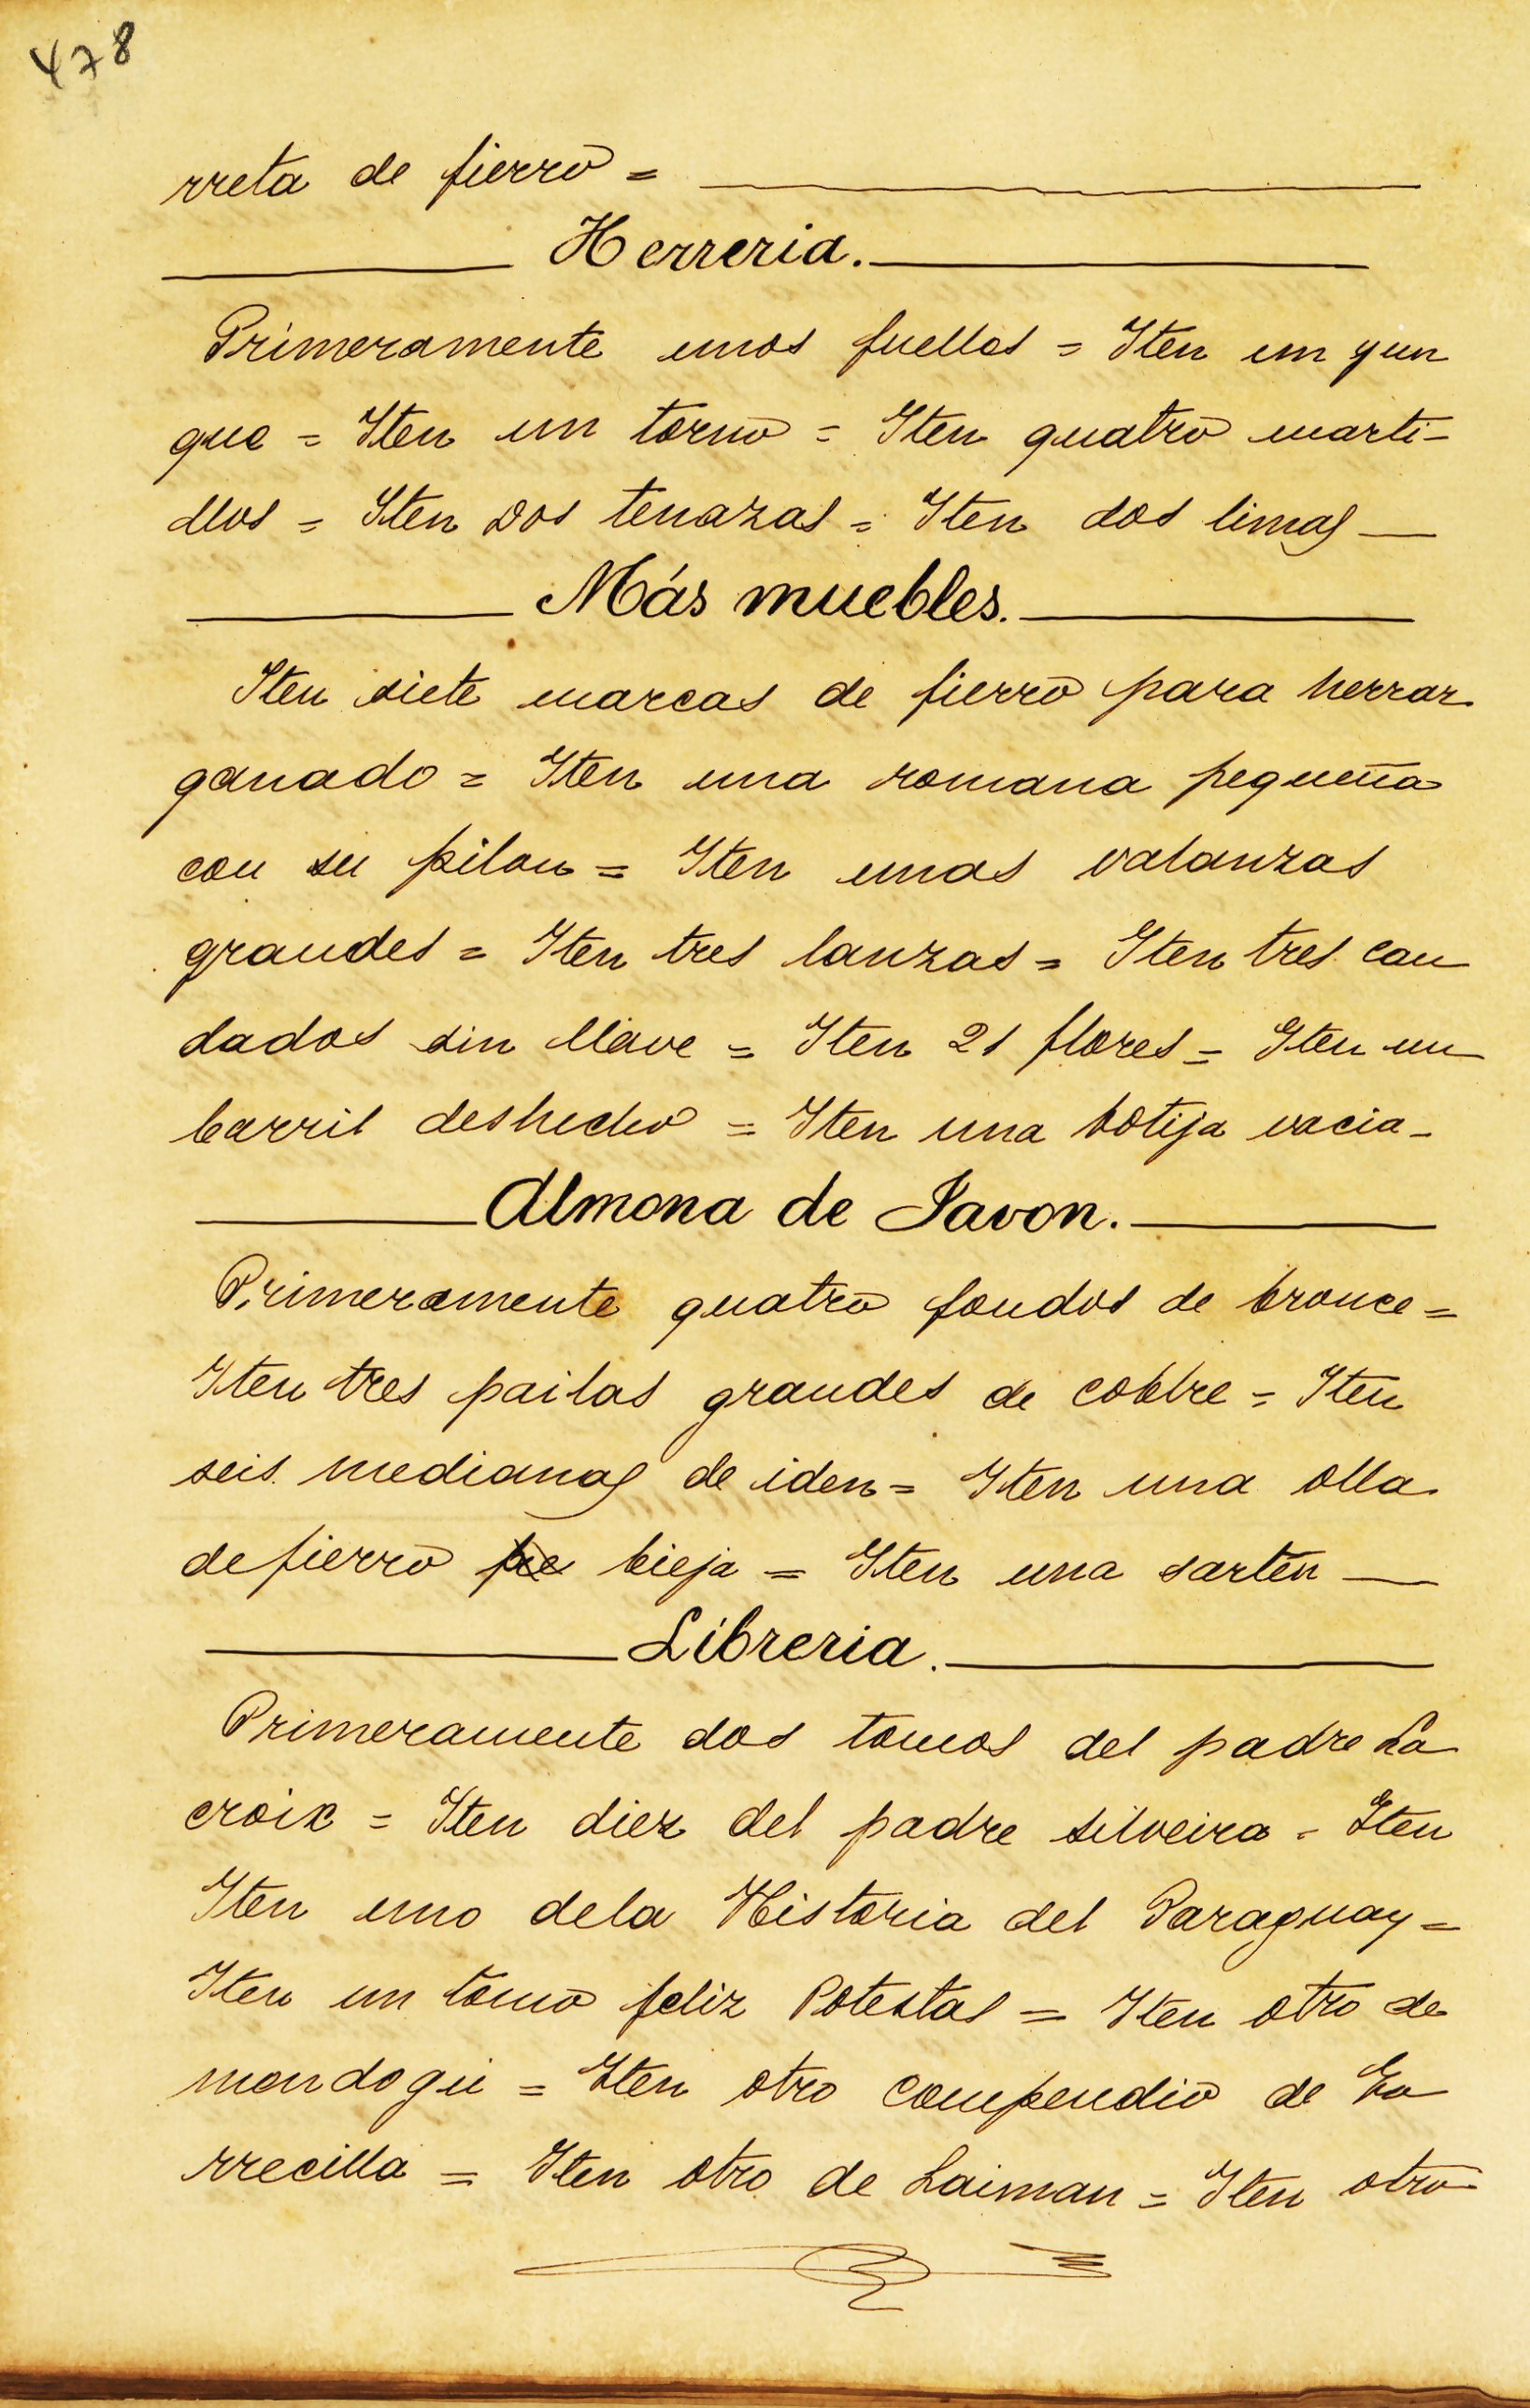 478
rreta de fierro =
Herreria.
Primeramente unos fuelles = Iten un yun
que = Iten un torno = Iten quatro marti-
llos = Iten Dos tenazas = Iten dos limas
Más muebles.
Iten siete marcas de fierro para herrar
ganado = Iten una romana pequeña
con su pilon = Iten unas valanzas
grandes = Iten tres lanzas = Iten tres can
dados sin llave = Iten 21 flores = Iten un
barril deshecho = Iten una botija vacia-
Almona de Javon.
Primeramente quatro fondos de bronce =
Iten tres pailas grandes de cobbre = Iten
seis medianas de iden = Iten una olla
de fierro bieja = Iten una sartén
Libreria.
Primeramente dos tomos del padre La
croix = Iten diez del padre silveira = Iten
Iten uno dela Historia del Paraguay =
Iten un tomo feliz Potestas = Iten otro de
mondogu = Iten otro compendio de
rrecilla = Iten otro de Laiman = Iten otro